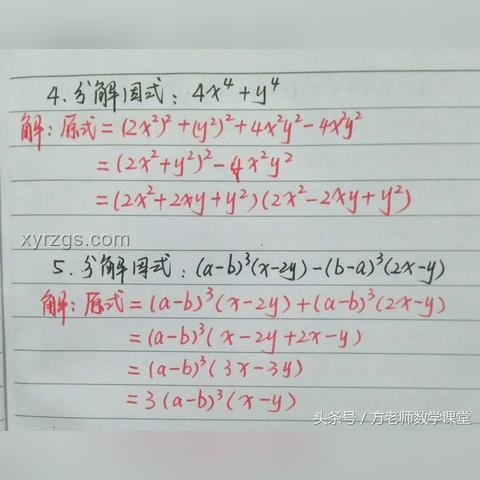 4. 分解因式：4x⁴+y⁴
解：原式=(2x²)²+(y²)²+4x²y²-4x²y²
=(2x²+y²)²-4x²y²
=(2x²+2xy+y²)(2x²-2xy+y²)
xyrzgs.com
5. 分解因式：(a-b)³(x-2y)-(b-a)³(2x-y)
解：原式=(a-b)³(x-2y)+(a-b)³(2x-y)
=(a-b)³(x-2y+2x-y)
=(a-b)³(3x-3y)
=3(a-b)³(x-y)
头条号/方老师数学课堂